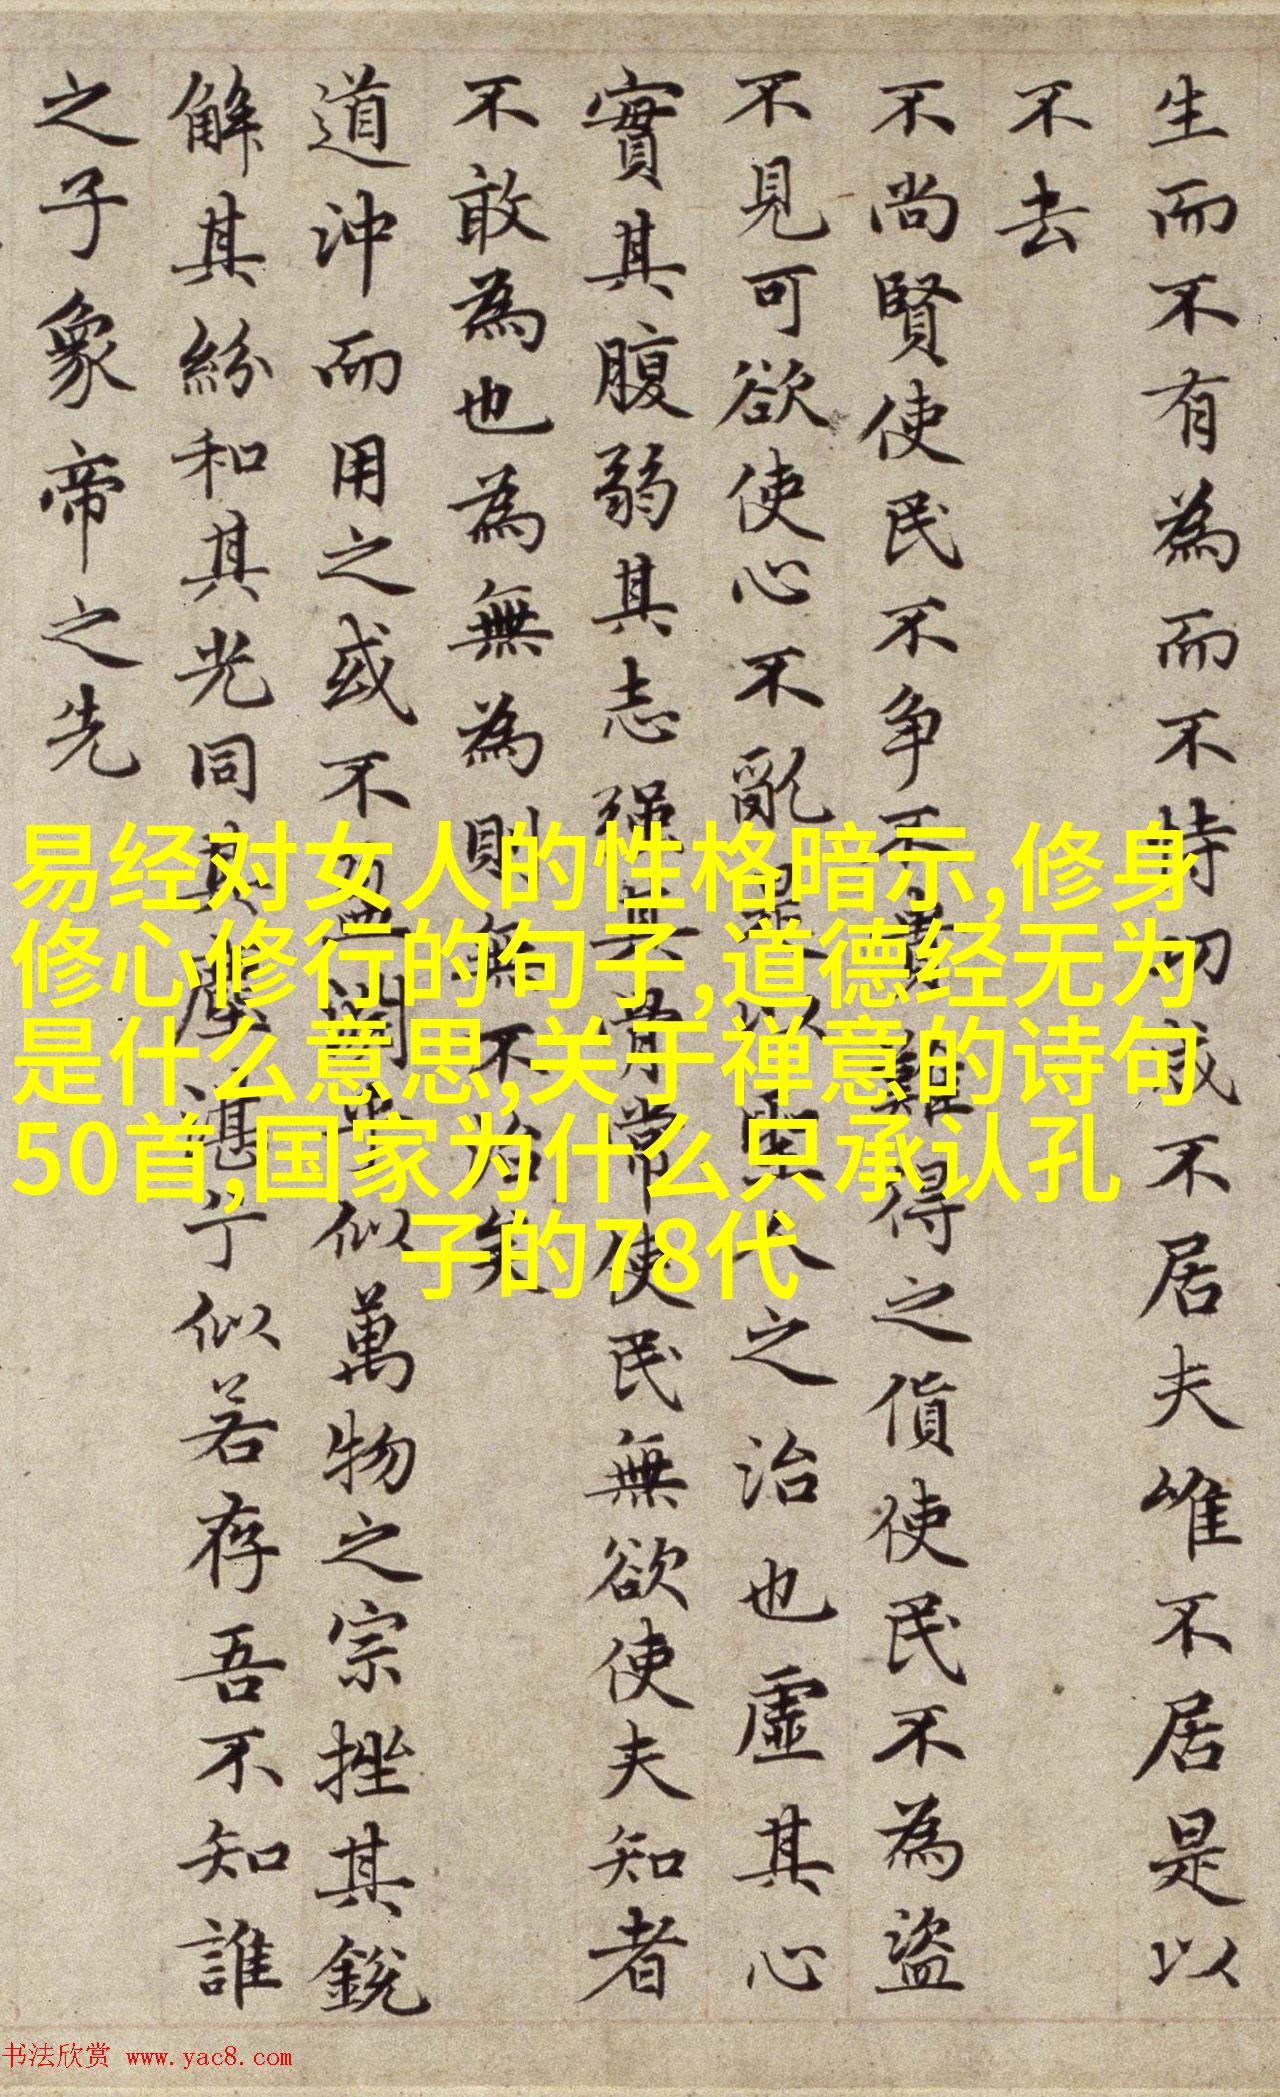 生而不有為而不恃功成不居夫唯不居是以
不去
不尚賢使民不争不貴難得之貨使民不為盜
不見可欲使心不亂是以聖人之治也虛其心
實其腹弱其志强其骨常使民無欲使夫知者
不敢為也為無為則無不治矣
道沖而用之或不盈淵似萬物之宗挫其銳
解其紛和其光同其塵湛似若存吾不知誰
之子象帝之先
易经对女人的性格暗示,修身
修心修行的句子,道德经无为
是什么意思,关于禅意的诗句
50首,国家为什么只承认孔
子的78代
书法欣赏 www.yac8.com